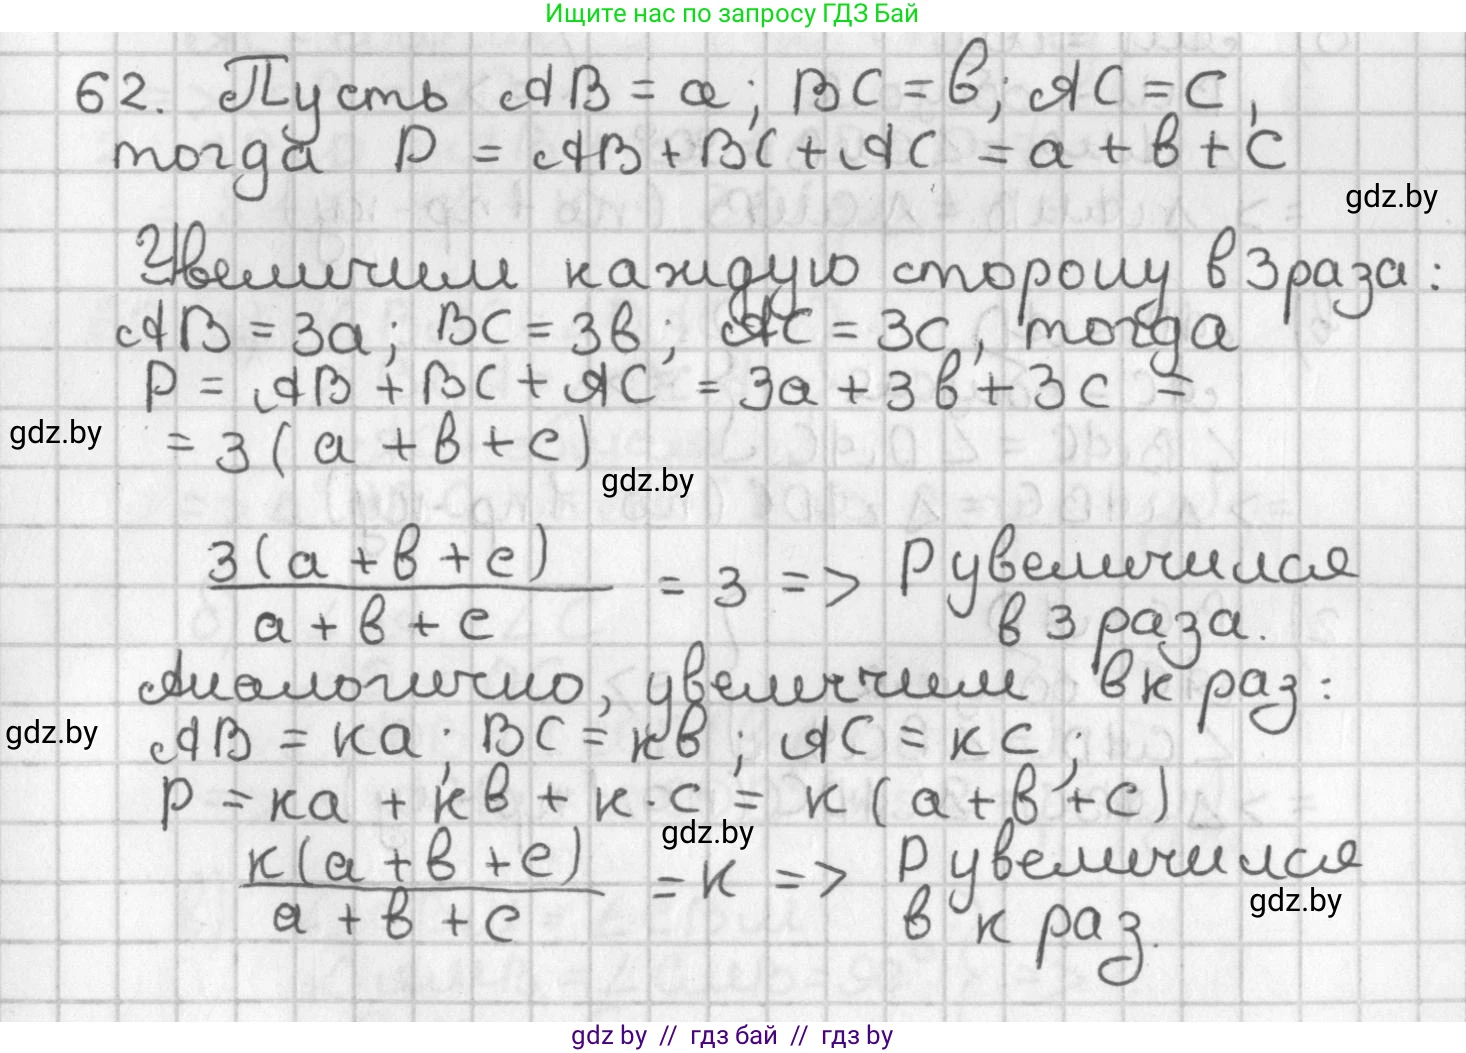 Ищите нас по запросу ГДЗ Бай
62. Пусть AB = a; BC = в; AC = c,
тогда P = AB + BC + AC = a + в + c
gdz.by
Увеличим каждую сторону в 3 раза:
AB = 3a; BC = 3в; AC = 3c, тогда
P = AB + BC + AC = 3a + 3в + 3c =
gdz.by
= 3 (a + в + c)
gdz.by
3(a + в + c)
a + в + c
= 3 => P увеличился
в 3 раза.
Аналогично, увеличим в к раз:
gdz.by
AB = кa; BC = кв; AC = кc;
P = кa + кв + к·c = к (a + в + c)
gdz.by
к(a + в + c)
a + в + c
= к => P увеличился
gdz.by
в к раз.
gdz by // гдз бай // гдз by